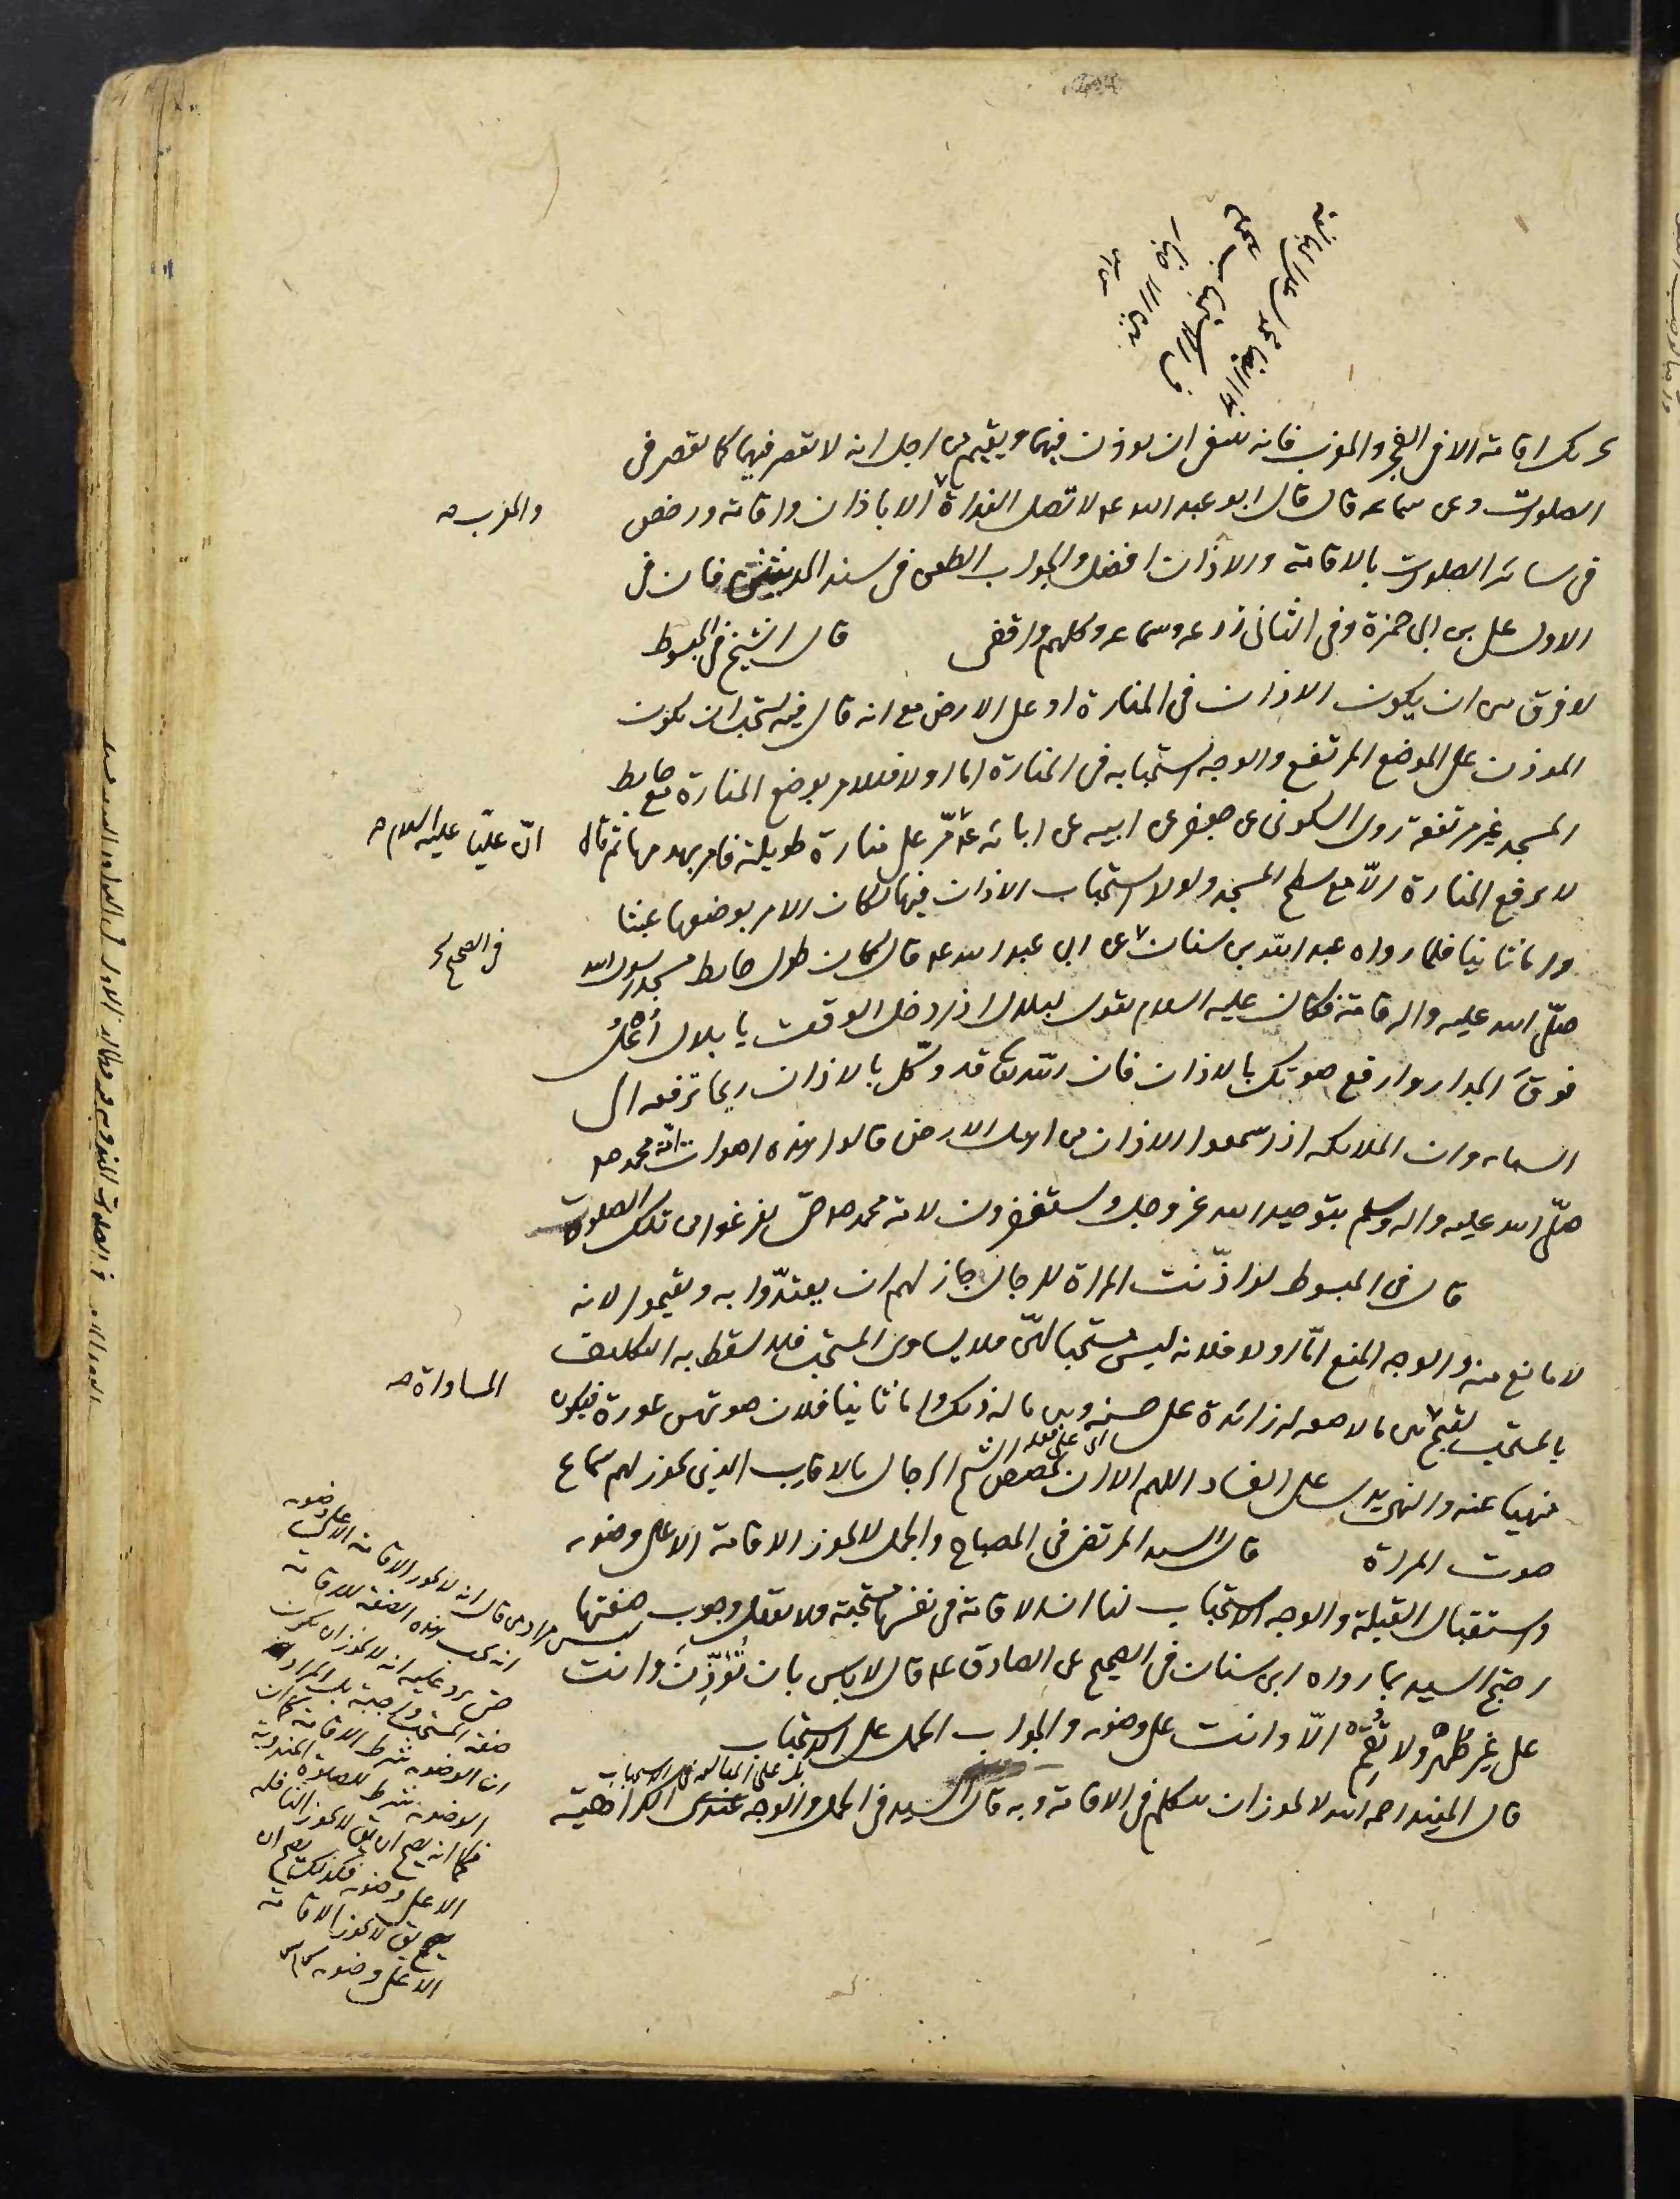 يجزيك اقامة الا في الفجر والمغرب فانه ينبغي ان يوذن فيهما ويقيم من اجل انه لا تقصر فيهما كما تقصر في
الصلوات وعن سماعه قال قال ابو عبد الله عه لا تصل الغداة الا باذان واقامة ورخص
والمغرب صح
في سائر الصلوات بالاقامة والاذان افضل والجواب الطعن في سند الحديثين فان في
الاول علي بن ابي حمزة وفي الثاني زرعه وسماعه وكلهم واقفي قال الشيخ في المبسوط
لا فرق بين ان يكون الاذان في المنارة او على الارض مع انه قال فيه يستحب ان يكون
الموذن على الموضع المرتفع والوجه استحبابه في المنارة اما اولا فللامر بوضع المنارة مع حايط
المسجد غير مرتفعة روى السكوني عن جعفر عن ابيه عن ابائه مر على منارة طويلة فامر بهدمها ثم قال
انّ عليّا عليه السلام صح
لا ترفع المنارة الّا مع سطح المسجد ولولا استحباب الاذان فيها لكان الامر بوضعها عبثا
واما ثانيا فلما رواه عبد الله بن سنان عن ابي عبد الله عه قال كان طول حايط مسجد رسول الله
في الصحيح
صلّى الله عليه واله قامة فكان عليه السلام يقول لبلال اذا دخل الوقت يا بلال أُعْلُ
فوقَ الجدار وارفع صوتك بالاذان فان الله تعا قد وكّل بالاذان ريحا ترفعه الى
السماء وان الملائكه اذا سمعوا الاذان من اهل الارض قالوا هذه اصوات امة محمد
صلّى الله عليه واله وسلم بتوحيد الله عز وجل ويستغفرون لامة محمد حتى يفرغوا من تلك الصلوة
قال في المبسوط اذا اذّنت المراة للرجال جاز لهم ان يعتدّوا به ويقيموا لانه
لا مانع منه والوجه المنع امّا اولا فلانه ليس مستحبا لهنّ فلا يساوى المستحب فلا يسقط به التكليف
بالمستحب لقبح بين ما لا صفه له زائدة على حسنه وبين ما له ذلك واما ثانيا فلان صوتهن عورة فيكون
المساواة صح
منهيا عنه والنهي يدل على الفساد اللهم الا ان يخصص الشيخ الرجال بالاقارب الذين يجوز لهم سماع
صوت المراة قال السيد المرتضى في المصباح والجمل لا يجوز الاقامة الا على وضوء
واستقبال القبلة والوجه الاستحباب لنا ان الاقامة في نفسها مستحبة ولا يعقل وجوب صفتها
احتج السيد بما رواه ابن سنان في الصحيح عن الصادق عه قال لا باس بان تُؤَذِّنَ وانت
على غير طهر ولا تُقِمْ الّا وانت على وضوء والجواب الحمل على الاستحباب
قال المفيد رحمه الله لا يجوز ان يتكلم في الاقامة وبه قال السيد في الجمل والوجه عندي الكراهية
ليس مرادي قال انه لا يجوز الاقامة الا على وضوء
انه يجب هذه الصفة للاقامة
حتى يرد عليه انه لا يجوز ان يكون
صفة المستحب واجبة بل المراد
ان الوضوء شرط الاقامة كما ان
الوضوء شرط للصلوة المندوبة
فكما انه يصح ان يق لا يجوز النافله
الا على وضوء فكذلك يصح ان
يق لا يجوز الاقامة
الا على وضوء